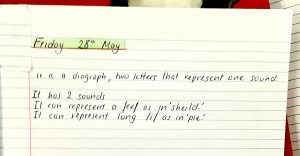 Friday 28th May
it is a diagraph, two letters that represent one sound.
It has 2 sounds
It can represent a /ee/ as in 'sheild.'
It can represent long /i/ as in 'pie.'